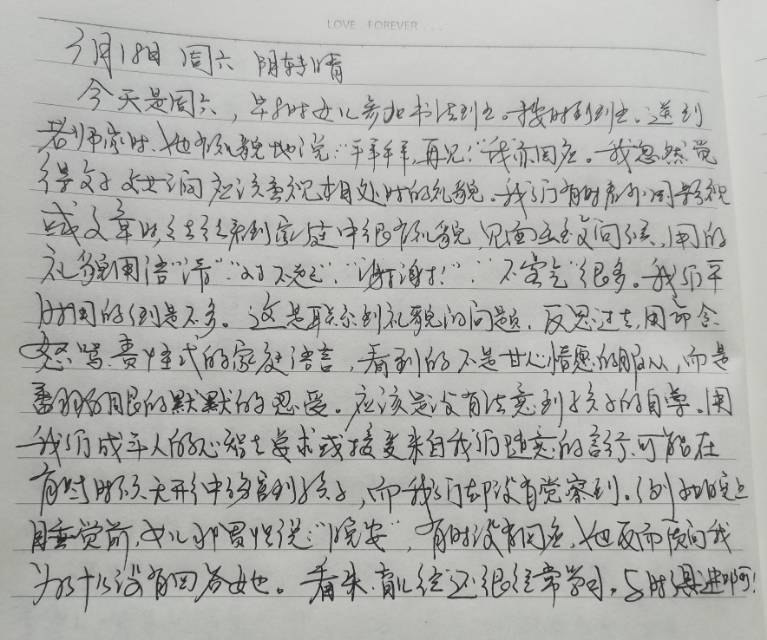 LOVE FOREVER...
3月18日 周六 阴转晴
今天是周六，早时女儿参加书法到点。按时到点。送到
老师家时，她有礼貌地说："爷爷，再见！"我亦回应。我忽然觉
得父子女之间应该重视相处时的礼貌。我们有时看外国影视
或文章时，往往看到家庭中很有礼貌，见面互致问候、用的
礼貌用语"请"、"对不起"、"谢谢！"、"不客气"很多。我们平
时用的倒是不多。这是联系到礼貌的问题，反思过去，用命令
怒骂、责怪式的家庭语言，看到的不是甘心情愿的服从，而是
委曲的默默的忍受。应该是没有注意到孩子的自尊。用
我们成年人的心智去要求或接受来自我们随意的言行，可能在
有些时候无形中伤害到孩子，而我们却没有觉察到。例如晚上
睡觉前，女儿习惯性说："晚安"，有时没有回应，她反而质问我
为什么没有回答她。看来，育儿经还很经常学习，与时俱进啊！